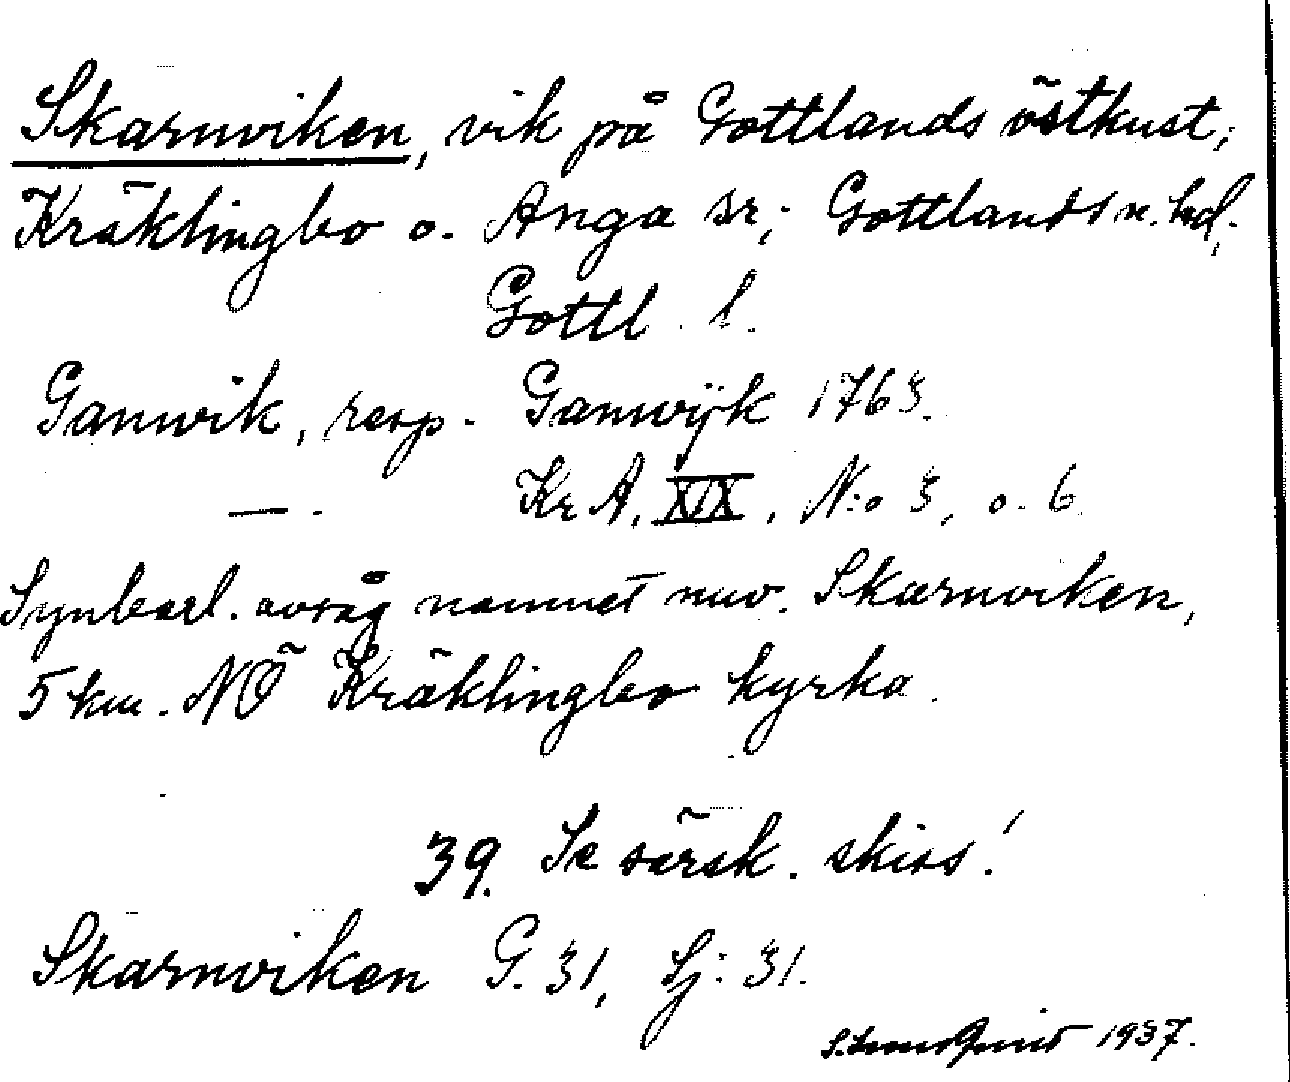 Skarnviken, vik på Gottlands östkust,
Kräklingbo o. Anga sr; Gottlands n. hd,
Gottl. l.
Ganwik, resp. Ganwijk 1763.
— . KrA, XIX, N:o 3, o. 6
Synbarl. avsåg namnet nuv. Skarnviken,
5 km. NÖ Kräklingbo kyrka.
39. Se särsk. skiss!
Skarnviken G. 31, Sj: 31.
1937.